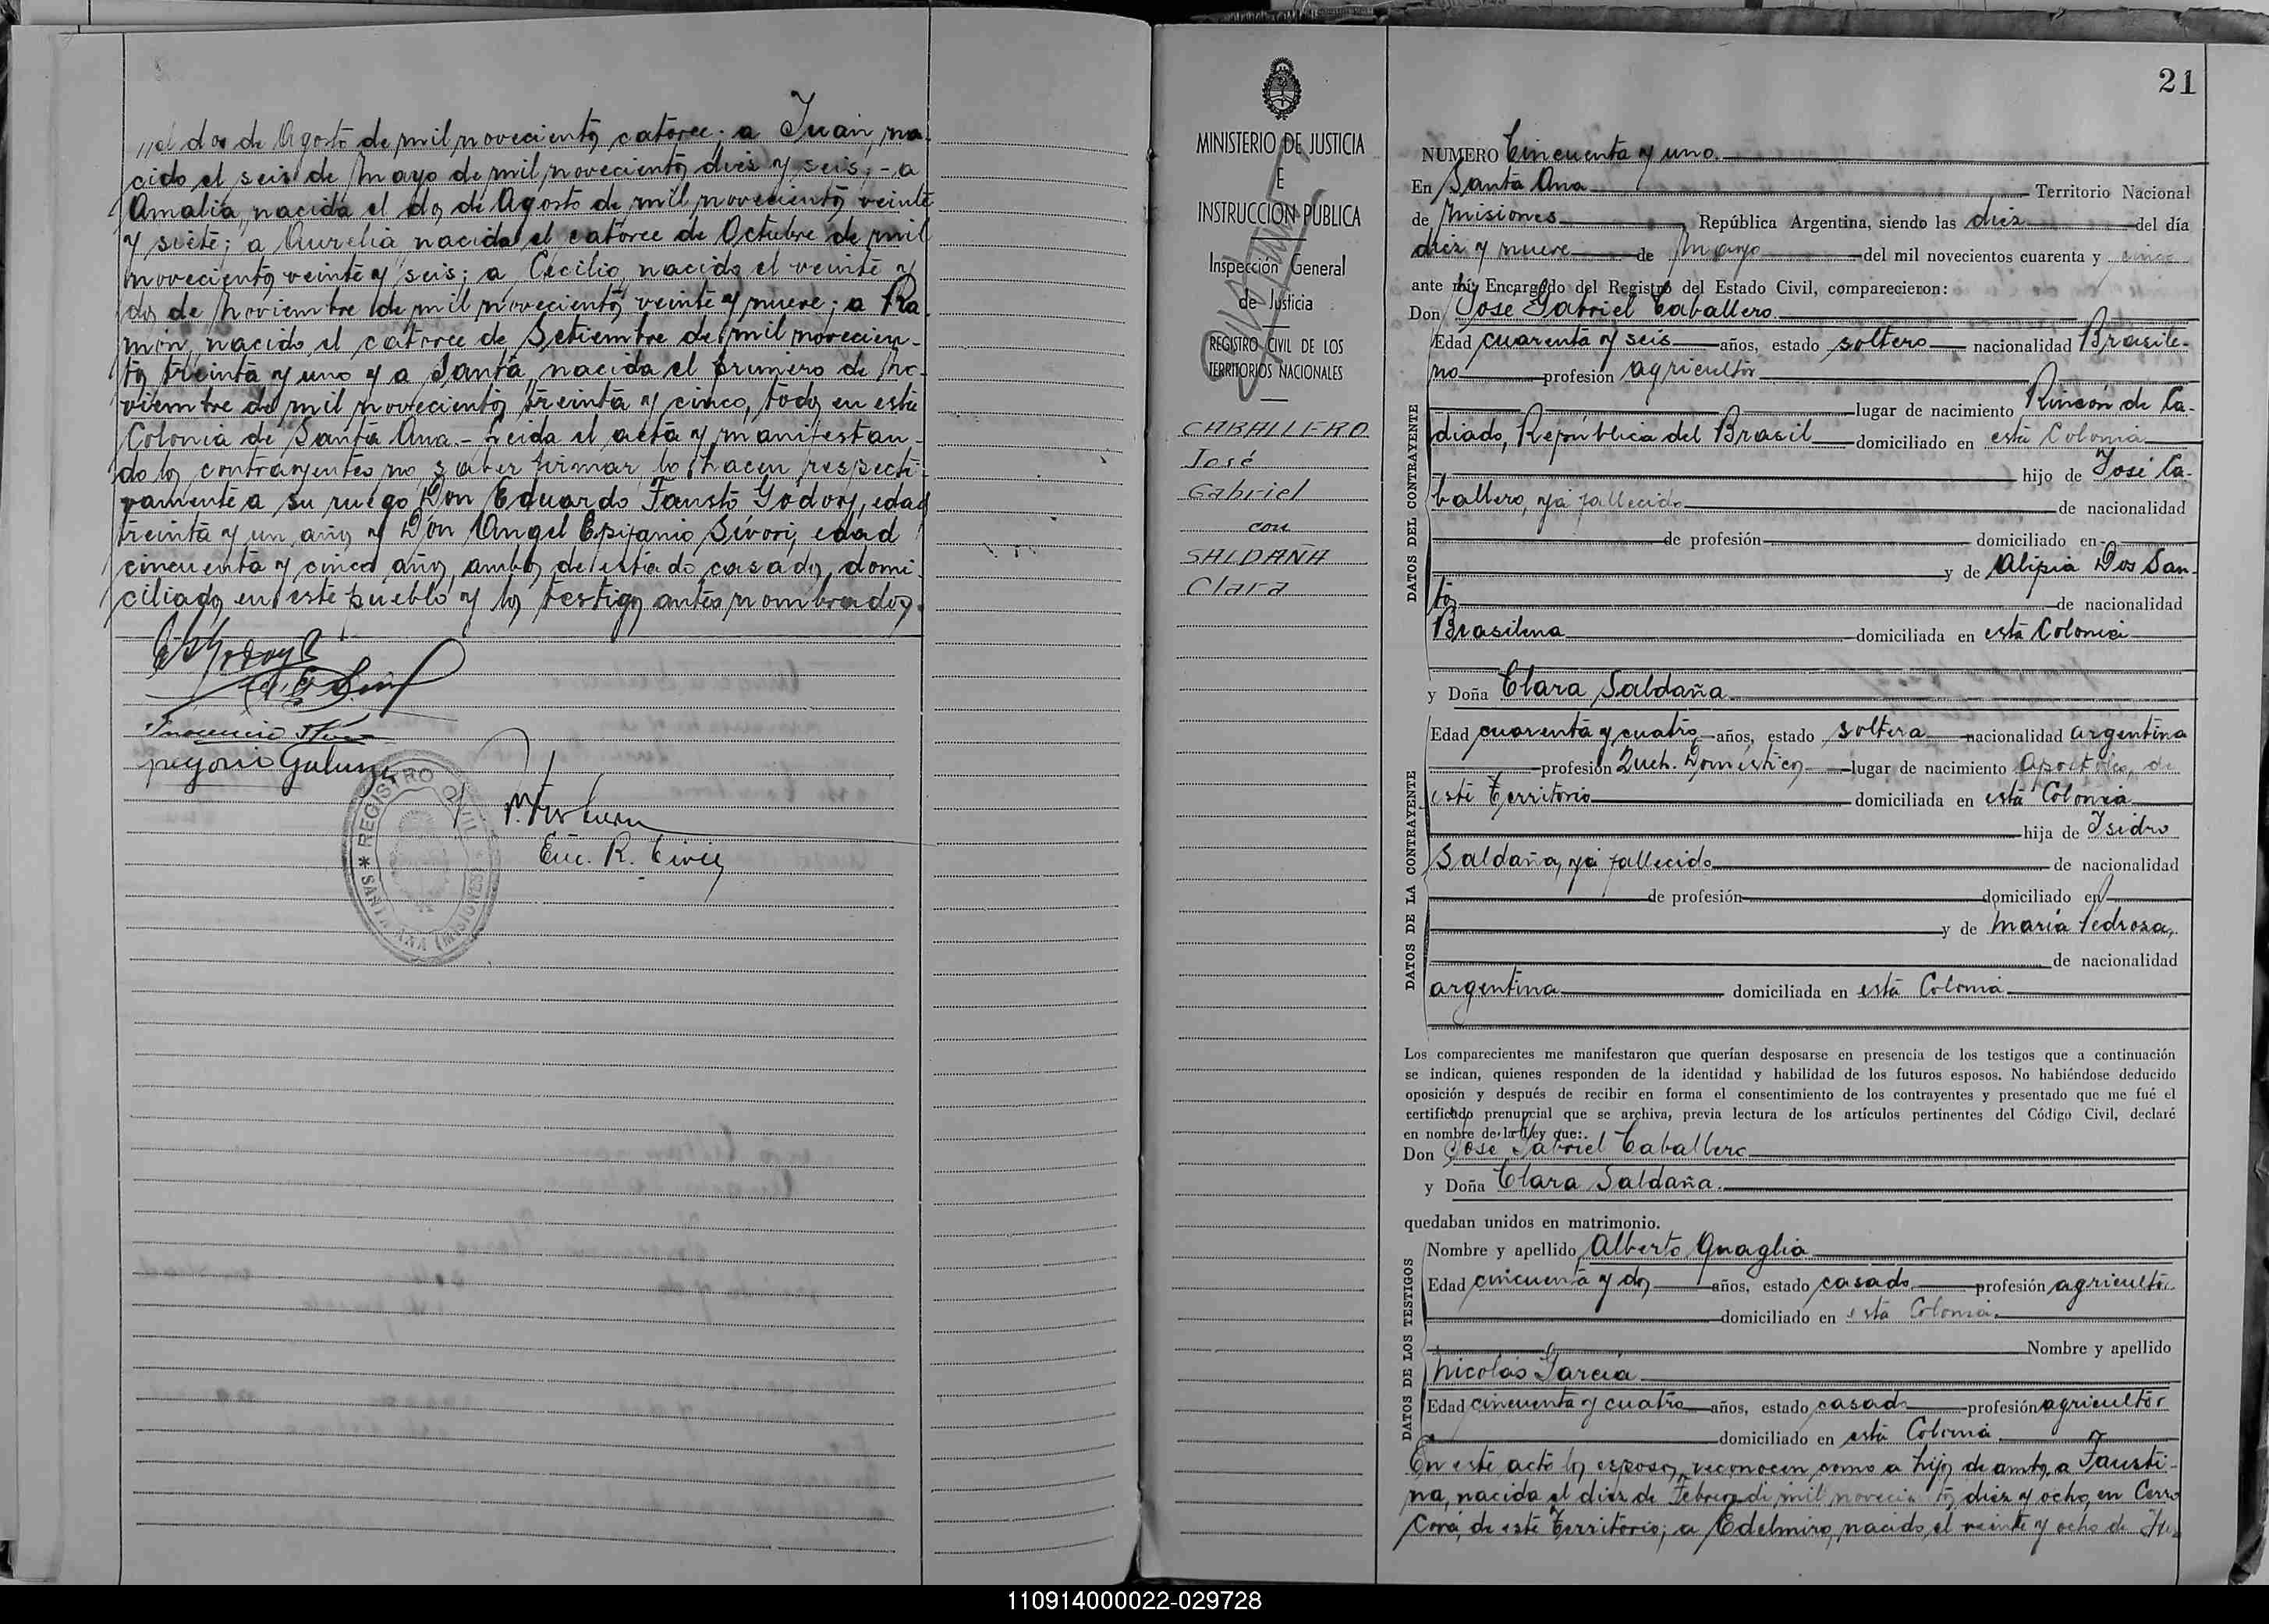 //el dos de Agosto de mil novecientos catorce; a Juan, na-
cido el seis de Mayo de mil novecientos diez y seis; - a
Amalia, nacida el dos de Agosto de mil novecientos veinte
y siete; a Aurelia nacida el catorce de Octubre de mil
novecientos veinte y seis; a Cecilio, nacido el veinte y
dos de Noviembre de mil novecientos veinte y nueve; a Ra-
món, nacido el catorce de Setiembre de mil novecien-
tos treinta y uno y a Santa, nacida el primero de No-
viembre de mil novecientos treinta y cinco, todos en esta
Colonia de Santa Ana.- Leida el acta y manifestan-
do los contrayentes no saber firmar lo hacen respecti-
vamente a su ruego Don Eduardo Fausto Godoy, edad
treinta y un años y Don Angel Epifanio Sívori, edad
cincuenta y cinco años, ambos de estado casados, domi-
ciliados en este pueblo y los testigos antes nombrados.
Enc. R. Civil
REGISTRO CIVIL
SANTA ANA (MISIONES)
MINISTERIO DE JUSTICIA
E
INSTRUCCION PUBLICA
Inspección General
de Justicia
REGISTRO CIVIL DE LOS
TERRITORIOS NACIONALES
CABALLERO
José
Gabriel
con
SALDAÑA
Clara
21
NUMERO Cincuenta y uno.
En Santa Ana Territorio Nacional
de Misiones República Argentina, siendo las diez del día
diez y nueve de Mayo del mil novecientos cuarenta y cinco
ante mi, Encargado del Registro del Estado Civil, comparecieron:
Don José Gabriel Caballero
DATOS DEL CONTRAYENTE
Edad cuarenta y seis años, estado soltero nacionalidad Brasile-
no profesión agricultor
lugar de nacimiento Rincón de Ca-
diado, República del Brasil domiciliado en esta Colonia
hijo de José Ca-
ballero, ya fallecido de nacionalidad
de profesión domiciliado en
y de Alipia Dos San-
tos de nacionalidad
Brasilena domiciliada en esta Colonia
y Doña Clara Saldaña
DATOS DE LA CONTRAYENTE
Edad cuarenta y cuatro años, estado soltera nacionalidad argentina
profesión Queh. Domésticos lugar de nacimiento Apostoles, de
este Territorio domiciliada en esta Colonia
hija de Isidro
Saldaña, ya fallecido de nacionalidad
de profesión domiciliado en
y de María Pedroza,
de nacionalidad
argentina domiciliada en esta Colonia
Los comparecientes me manifestaron que querían desposarse en presencia de los testigos que a continuación
se indican, quienes responden de la identidad y habilidad de los futuros esposos. No habiéndose deducido
oposición y después de recibir en forma el consentimiento de los contrayentes y presentado que me fué el
certificado prenupcial que se archiva, previa lectura de los artículos pertinentes del Código Civil, declaré
en nombre de la Ley que:
Don José Gabriel Caballero
y Doña Clara Saldaña.
quedaban unidos en matrimonio.
DATOS DE LOS TESTIGOS
Nombre y apellido Alberto Quaglia
Edad cincuenta y dos años, estado casado profesión agricultor
domiciliado en esta Colonia.
Nombre y apellido
Nicolás García
Edad cincuenta y cuatro años, estado casado profesión agricultor
domiciliado en esta Colonia.
En este acto los esposos reconocen como a hijos de ambos a Fausti-
na, nacida el diez de Febrero de mil novecientos diez y ocho, en Cerro
Corá, de este Territorio; a Edelmiro, nacido el veinte y ocho de
110914000022-029728